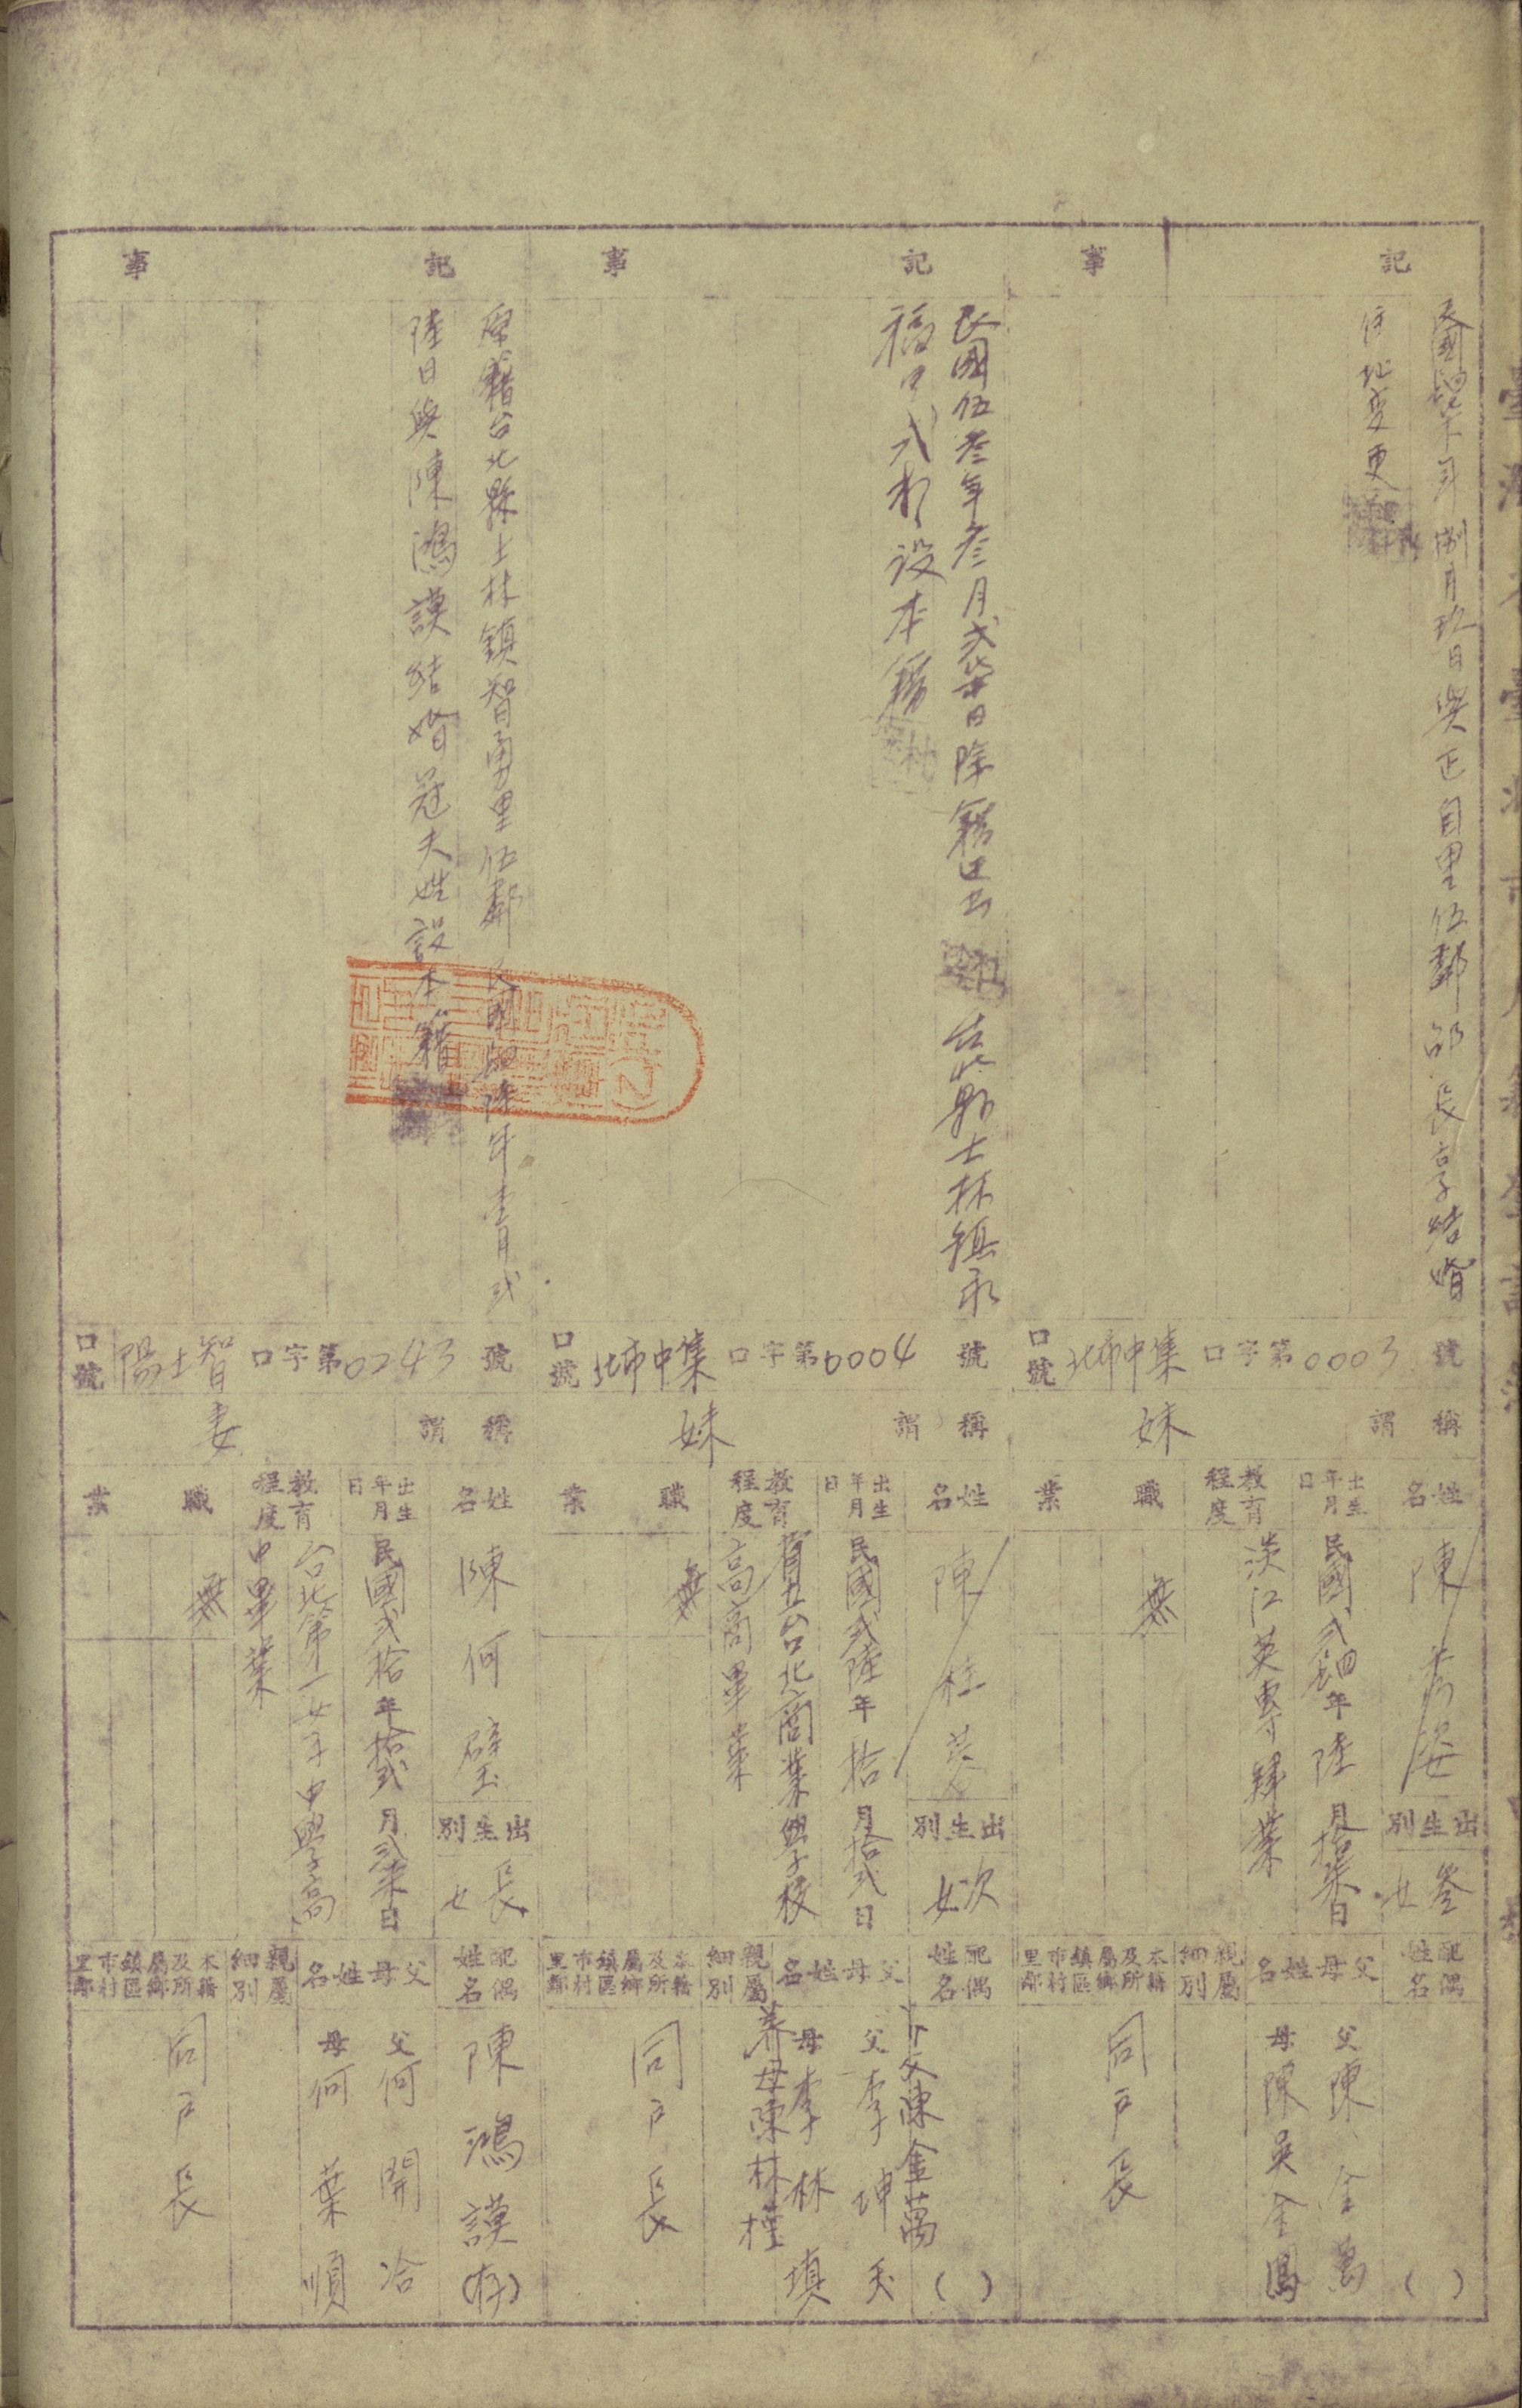 記事
月玖日與正目里伍鄰邱長享結婚
住址變更
口號 北市中集 口字第0003號
稱謂 妹
姓名 陳秀姿
出生別 參女
出生年月日 民國貳肆年陸月拾柒日
教育程度 淡江英專肄業
職業 無
配偶姓名 ( )
父母姓名 父 陳金萬
母 陳吳金鳳
親屬細別
本籍及所屬鄉鎮區市村里鄰 同戶長
記事
民國伍叁年叁月貳柒日除籍遷出 台北縣士林鎮永
福里貳鄰設本籍
口號 北市中集 口字第0004號
稱謂 妹
姓名 陳桂
出生別 次女
出生年月日 民國貳陸年拾月拾貳日
教育程度 省立台北商業學校
高商畢業
職業 無
配偶姓名 ( )
養父陳金萬
父母姓名 父 李坤
母 李林填
養母陳林
親屬細別
本籍及所屬鄉鎮區市村里鄰 同戶長
記事
原籍台北縣士林鎮智勇里伍鄰 民國肆陸年壹月貳
陸日與陳鴻謨結婚冠夫姓設本籍
口號 陽士智 口字第0243號
稱謂 妻
姓名 陳何璧
出生別 長女
出生年月日 民國貳拾年拾貳月貳柒日
教育程度 台北第一女子中學高
中畢業
職業 無
配偶姓名 陳鴻謨(存)
父母姓名 父 何開洽
母 何葉順
親屬細別
本籍及所屬鄉鎮區市村里鄰 同戶長